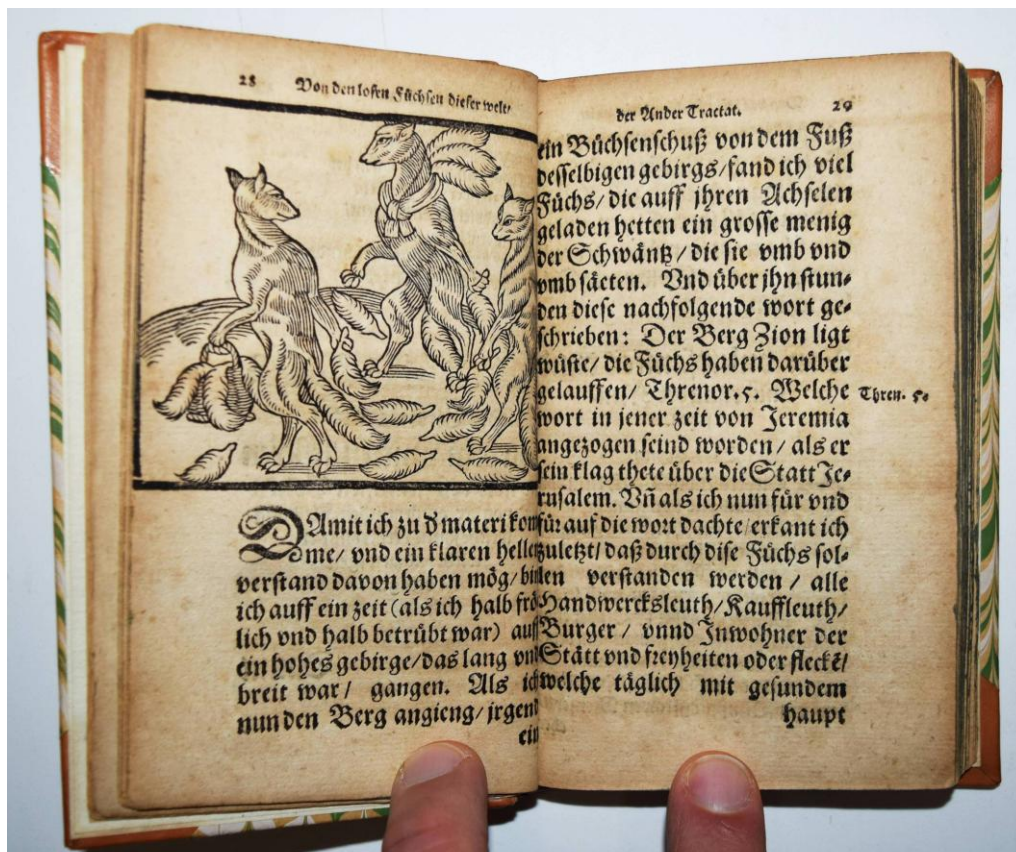 28 Von den losen Füchsen dieser welt/
DAmit ich zu d materi kom
me/ vnd ein klaren hellen
verstand davon haben mög/ bin
ich auff ein zeit (als ich halb frö
lich vnd halb betrübt war) auff
ein hohes gebirge/ das lang vnd
breit war/ gangen. Als ich
nun den Berg angieng/ jrgend
ein
der Ander Tractat. 29
ein Büchsenschuß von dem Fuß
desselbigen gebirgs/ fand ich viel
Füchs/ die auff jhren Achselen
geladen hetten ein grosse menig
der Schwäntz/ die sie vmb vnd
vmb säeten. Vnd über jhn stun-
den diese nachfolgende wort ge-
schrieben: Der Berg Zion ligt
wüste/ die Füchs haben darüber
gelauffen/ Threnor. 5. Welche Thren. 5.
wort in jener zeit von Jeremia
angezogen seind worden/ als er
sein klag thete über die Statt Je-
rusalem. Vñ als ich nun für vnd
für auf die wort dachte/ erkant ich
zuletzt/ daß durch dise Füchs sol-
len verstanden werden/ alle
Handwercksleuth/ Kauffleuth/
Burger/ vnnd Inwohner der
Stätt vnd freyheiten oder fleckẽ/
welche täglich mit gesundem
haupt